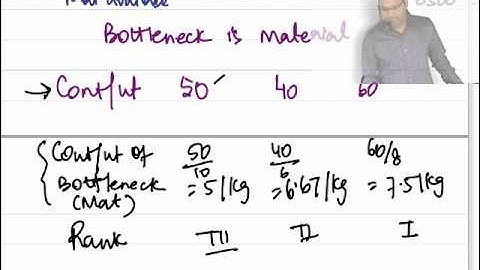 Bottleneck is material
→ Cont/ut 50 40 60
Cont/ut of 50/10 40/6 60/8
Bottleneck = 5/kg = 6.67/kg = 7.5/kg
(Mat)
Rank III II I